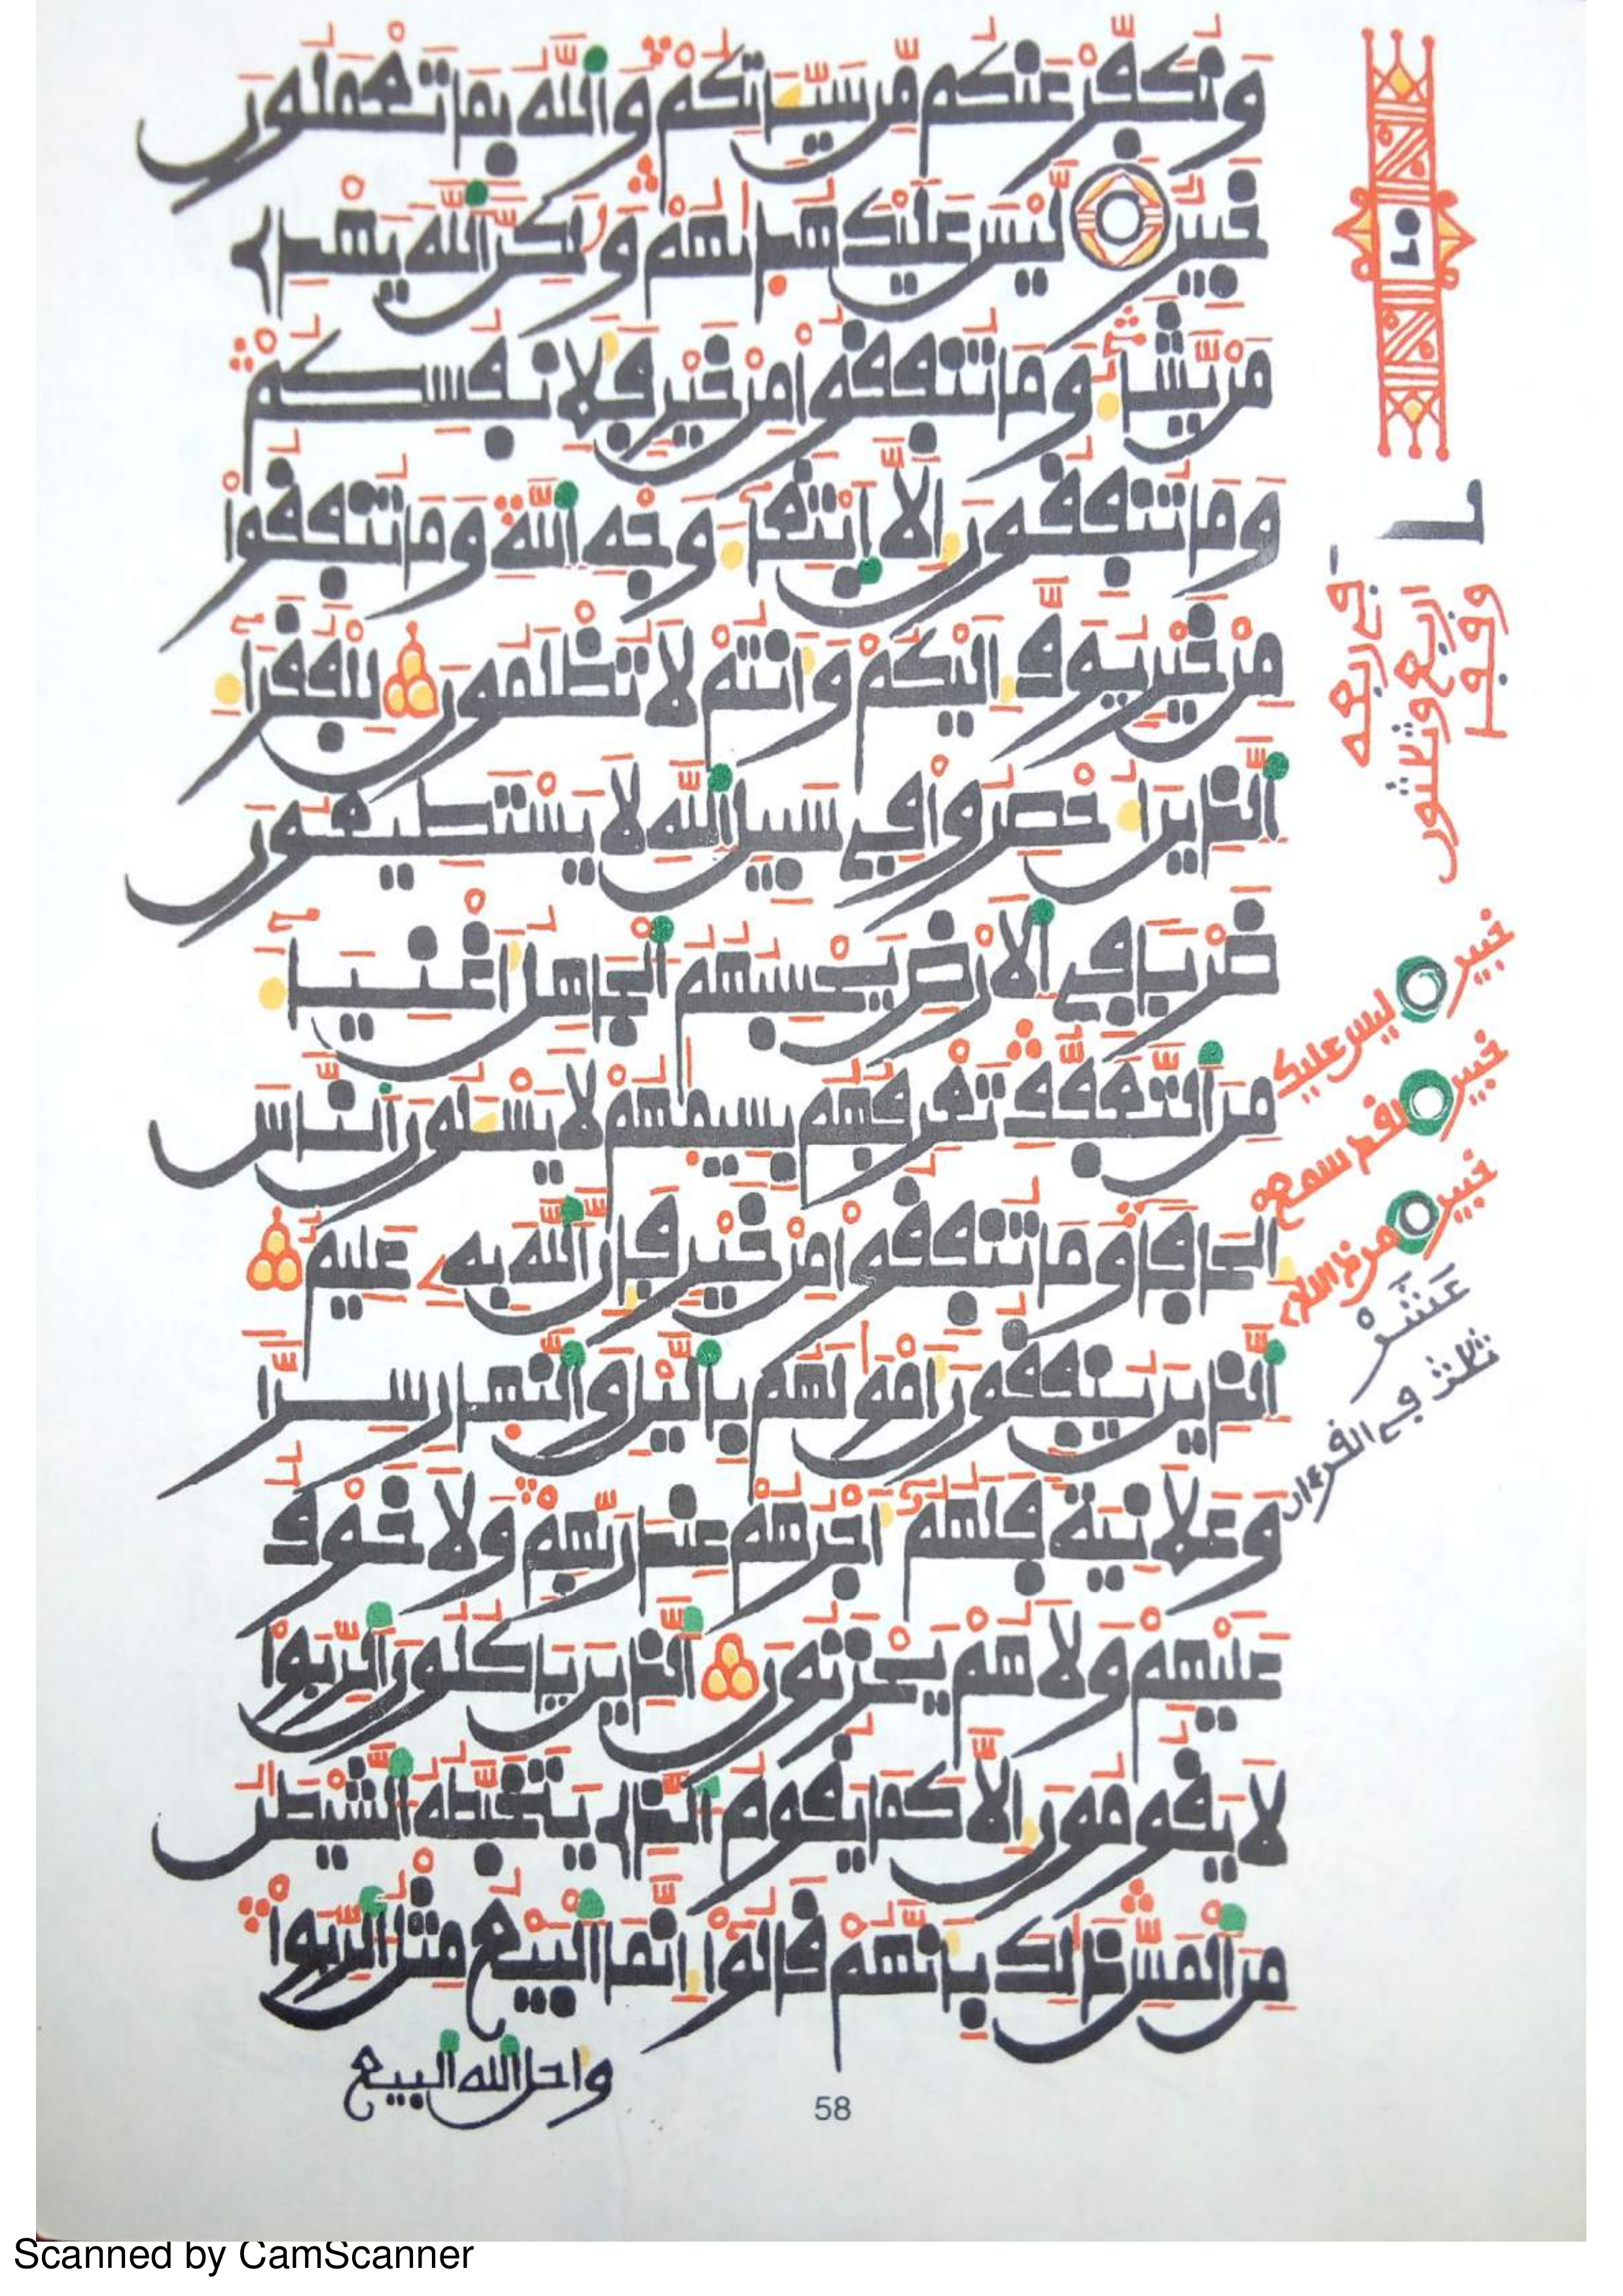 وَنُكَفِّرْ عَنكُم مِّن سَيِّـَٔاتِكُمْ وَٱللَّهُ بِمَا تَعْمَلُونَ
خَبِيرٌ لَّيْسَ عَلَيْكَ هُدَىٰهُمْ وَلَٰكِنَّ ٱللَّهَ يَهْدِے
مَنْ يَّشَآءُ وَمَا تُنفِقُوا مِنْ خَيْرٍ فَلِأَنفُسِكُمْ
وَمَا تُنفِقُونَ إِلَّا ٱبْتِغَآءَ وَجْهِ ٱللَّهِ وَمَا تُنفِقُوا
مِنْ خَيْرٍ يُوَفَّ إِلَيْكُمْ وَأَنتُمْ لَا تُظْلَمُونَ لِلْفُقَرَآءِ
ٱلَّذِينَ أُحْصِرُوا فِے سَبِيلِ ٱللَّهِ لَا يَسْتَطِيعُونَ
ضَرْبًا فِے ٱلْأَرْضِ يَحْسِبُهُمُ ٱلْجَاهِلُ أَغْنِيَآءَ
مِنَ ٱلتَّعَفُّفِ تَعْرِفُهُم بِسِيمَٰهُمْ لَا يَسْـَٔلُونَ ٱلنَّاسَ
إِلْحَافًا وَمَا تُنفِقُوا مِنْ خَيْرٍ فَإِنَّ ٱللَّهَ بِهِۦ عَلِيمٌ
ٱلَّذِينَ يُنفِقُونَ أَمْوَٰلَهُم بِٱلَّيْلِ وَٱلنَّهَارِ سِرًّا
وَعَلَانِيَةً فَلَهُمُۥٓ أَجْرُهُمْ عِندَ رَبِّهِمْ وَلَا خَوْفٌ
عَلَيْهِمْ وَلَا هُمْ يَحْزَنُونَ ٱلَّذِينَ يَأْكُلُونَ ٱلرِّبَوٰا
لَا يَقُومُونَ إِلَّا كَمَا يَقُومُ ٱلَّذِے يَتَخَبَّطُهُ ٱلشَّيْطَٰنُ
مِنَ ٱلْمَسِّ ذَٰلِكَ بِأَنَّهُمْ قَالُوٓا إِنَّمَا ٱلْبَيْعُ مِثْلُ ٱلرِّبَوٰا
واحل الله البيع
58
خبير ليس عليك
خبير
خبير
عَشَرْ
ثلث في القرءان
Scanned by CamScanner